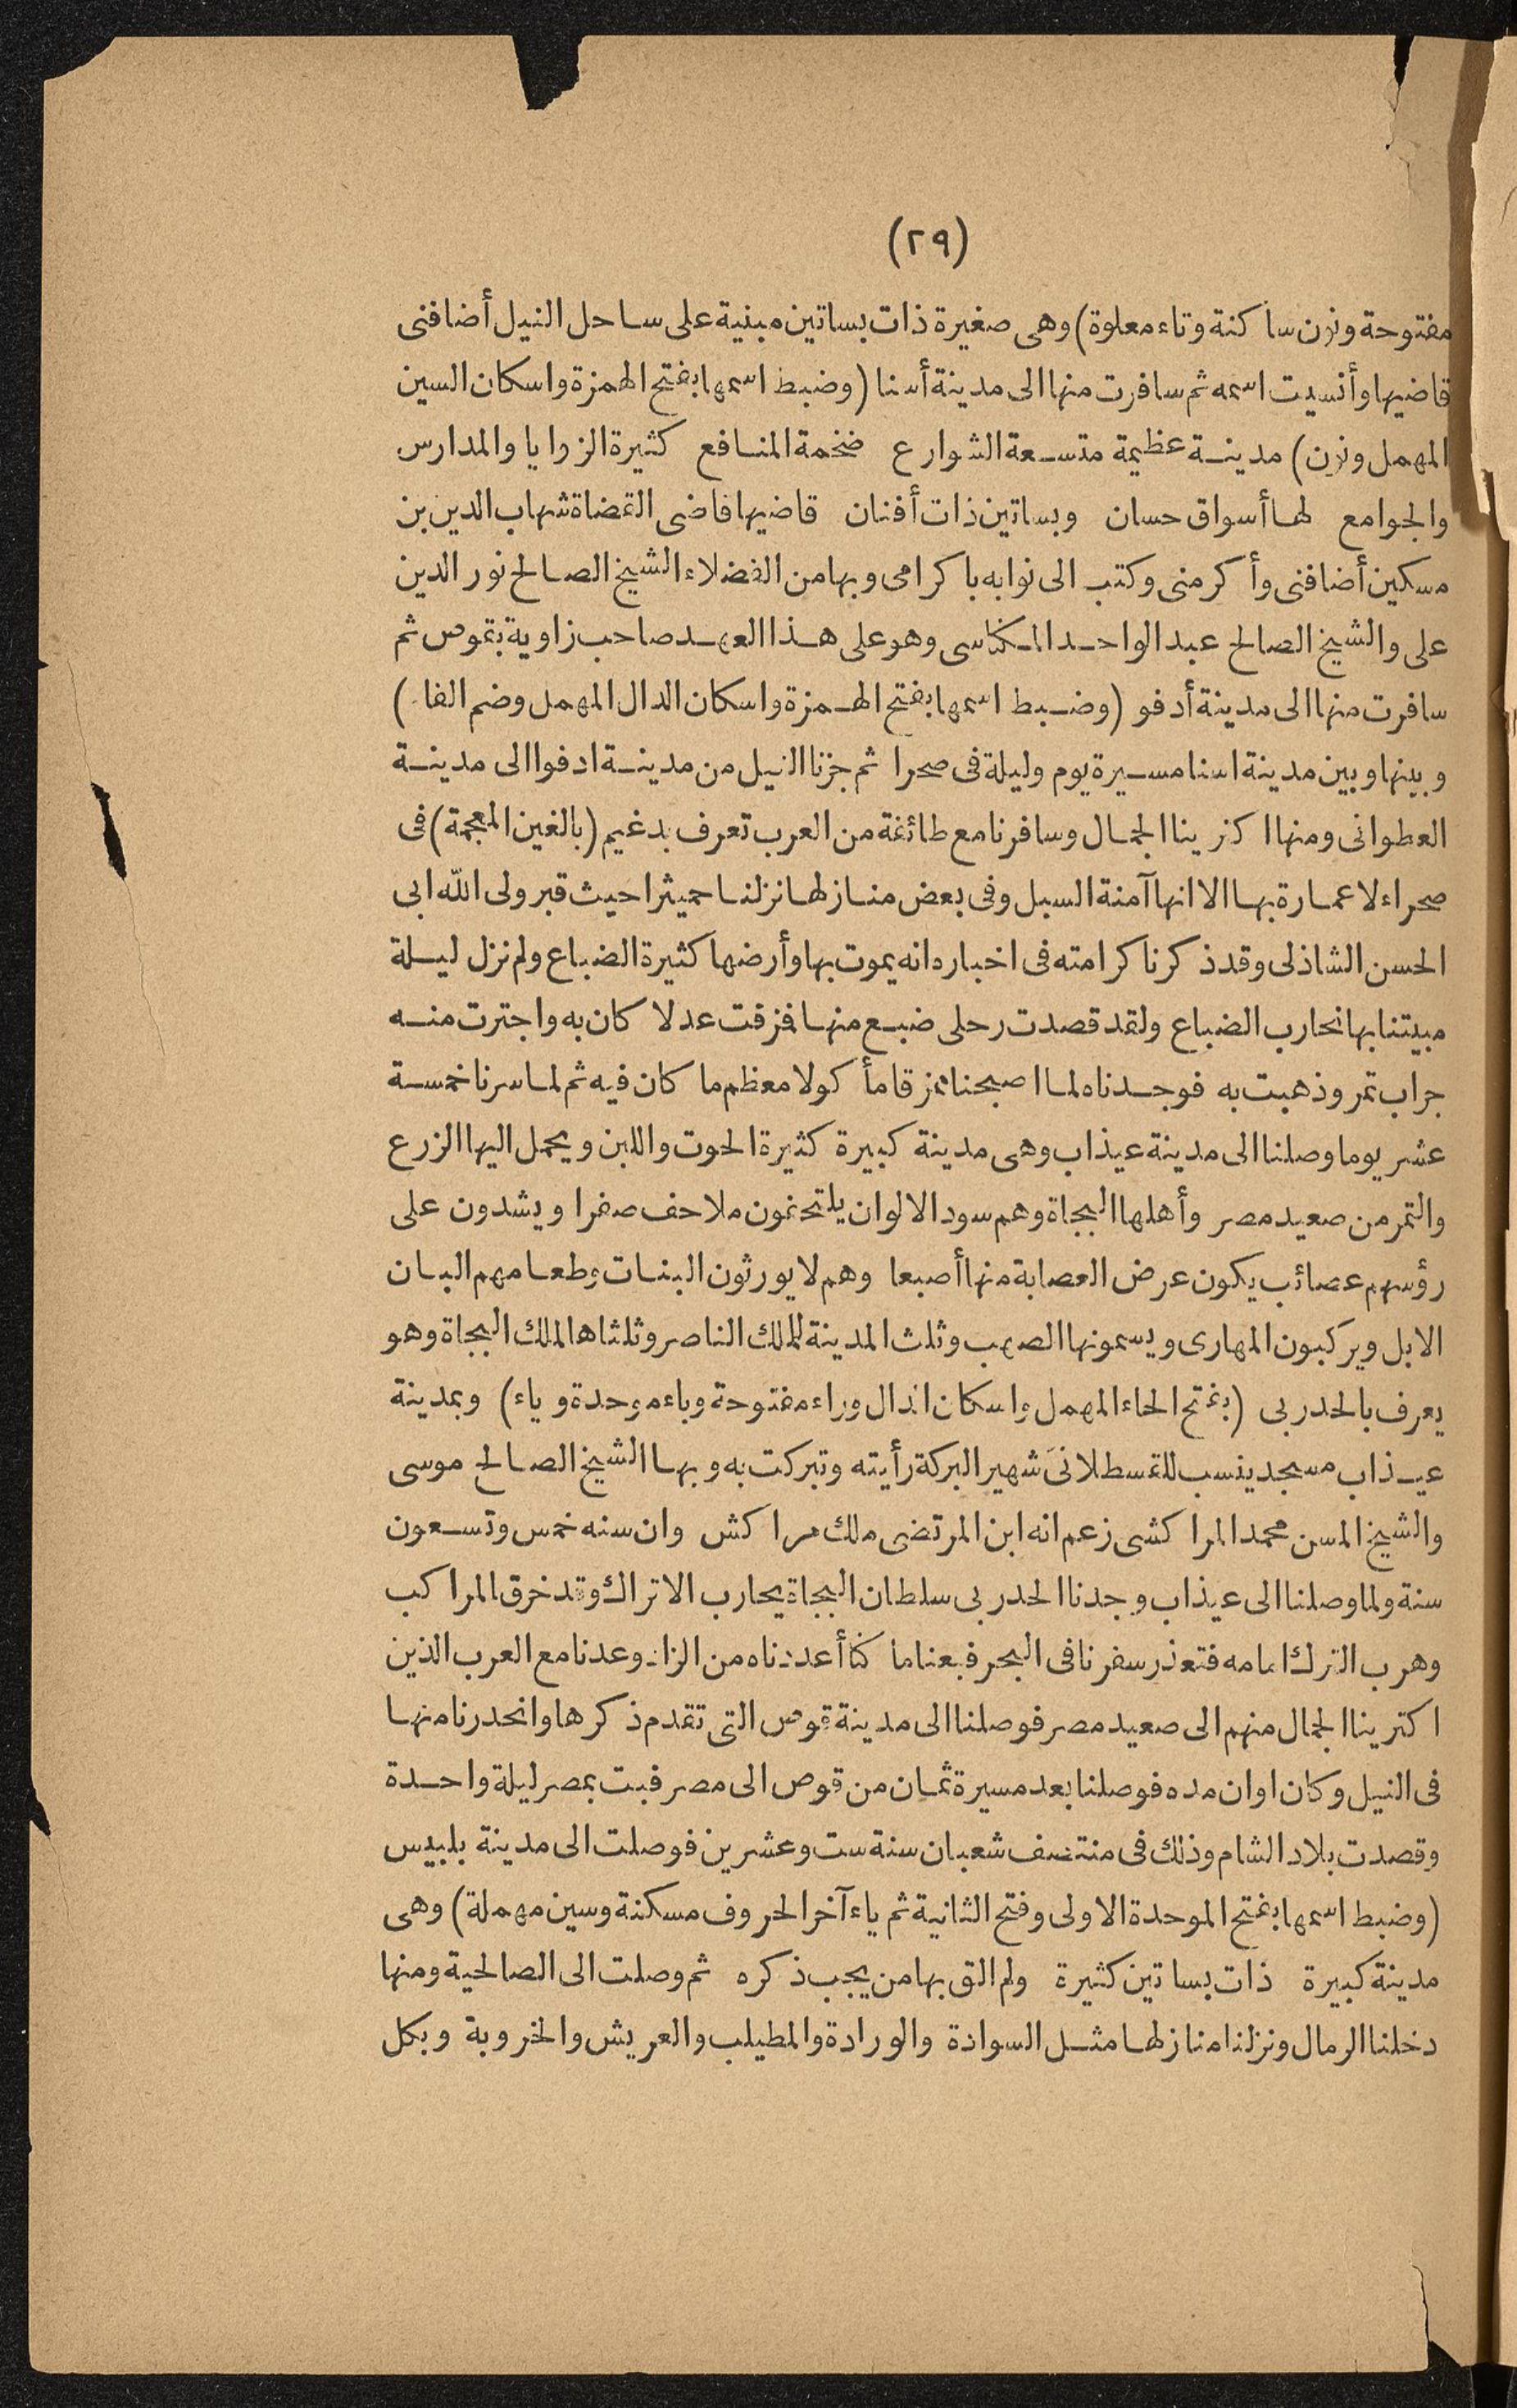 (٢٩)
مفتوحة ونون ساكنة وتاء معلوة) وهى صغيرة ذات بساتين مبنية على ساحل النيل أضافنى
قاضيها وأنسيت اسمه ثم سافرت منها الى مدينة أسنا (وضبط اسمها بفتح الهمزة واسكان السين
المهمل ونون) مدينة عظيمة متسعة الشوارع ضخمة المنافع كثيرة الزوايا والمدارس
والجوامع لها أسواق حسان وبساتين ذات أفنان قاضيها قاضى القضاة شهاب الدين بن
مسكين أضافنى وأكرمنى وكتب الى نوابه باكرامى وبها من الفضلاء الشيخ الصالح نور الدين
على والشيخ الصالح عبد الواحد المكناسى وهو على هذا العهد صاحب زاوية بقوص ثم
سافرت منها الى مدينة أدفو (وضبط اسمها بفتح الهمزة واسكان الدال المهمل وضم الفاء)
وبينها وبين مدينة اسنا مسيرة يوم وليلة فى صحرا ثم جزنا النيل من مدينة ادفوا الى مدينة
العطوانى ومنها اكترينا الجمال وسافرنا مع طائفة من العرب تعرف بدغيم (بالغين المعجمة) فى
صحراء لا عمارة بها الا انها آمنة السبل وفى بعض منازلها نزلنا حميثرا حيث قبر ولى الله ابى
الحسن الشاذلى وقد ذكرنا كرامته فى اخباره انه يموت بها وأرضها كثيرة الضباع ولم نزل ليلة
مبيتنا بها نحارب الضباع ولقد قصدت رحلى ضبع منها فمزقت عدلا كان به واجترت منه
جراب تمر وذهبت به فوجدناه لما اصبحنا ممزقا مأكولا معظم ما كان فيه ثم لما سرنا خمسة
عشر يوما وصلنا الى مدينة عيذاب وهى مدينة كبيرة كثيرة الحوت واللبن ويحمل اليها الزرع
والتمر من صعيد مصر وأهلها البجاة وهم سود الالوان يلتحفون ملاحف صفرا ويشدون على
رؤسهم عصائب يكون عرض العصابة منها أصبعا وهم لا يورثون البنات وطعامهم البان
الابل ويركبون المهارى ويسمونها الصهب وثلث المدينة للملك الناصر وثلثاها الملك البجاة وهو
يعرف بالحدربى (بفتح الحاء المهمل واسكان الدال وراء مفتوحة وباء موحدة وياء) وبمدينة
عيذاب مسجد ينسب للقسطلانى شهير البركة رأيته وتبركت به وبها الشيخ الصالح موسى
والشيخ المسن محمد المراكشى زعم انه ابن المرتضى ملك مراكش وان سنه خمس وتسعون
سنة ولما وصلنا الى عيذاب وجدنا الحدربى سلطان البجاة يحارب الاتراك وقد خرق المراكب
وهرب الترك امامه فتعذر سفرنا فى البحر فبعنا ما كنا أعددناه من الزاد وعدنا مع العرب الذين
اكترينا الجمال منهم الى صعيد مصر فوصلنا الى مدينة قوص التى تقدم ذكرها وانحدرنا منها
فى النيل وكان اوان مده فوصلنا بعد مسيرة ثمان من قوص الى مصر فبت بمصر ليلة واحدة
وقصدت بلاد الشام وذلك فى منتصف شعبان سنة ست وعشرين فوصلت الى مدينة بلبيس
(وضبط اسمها بفتح الموحدة الاولى وفتح الثانية ثم ياء آخر الحروف مسكنة وسين مهملة) وهى
مدينة كبيرة ذات بساتين كثيرة ولم الق بها من يجب ذكره ثم وصلت الى الصالحية ومنها
دخلنا الرمال ونزلنا منازلها مثل السوادة والورادة والمطيلب والعريش والخروبة وبكل